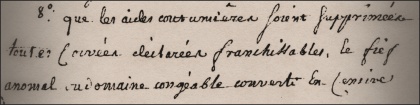 8.° que les aides coutumières soient supprimées
toutes Corvées déclarées franchissables, le fief
anomal ou domaine congéable converti En Censive